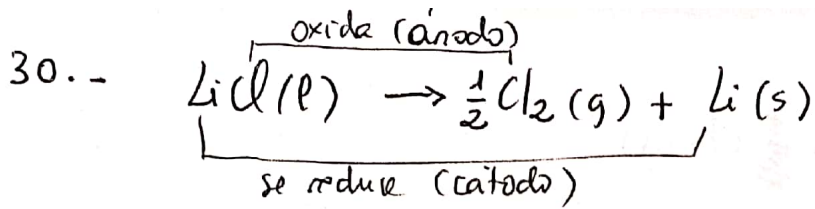 oxida (ánodo)
30.- LiCl(l) → 1/2 Cl2 (g) + Li (s)
se reduce (cátodo)